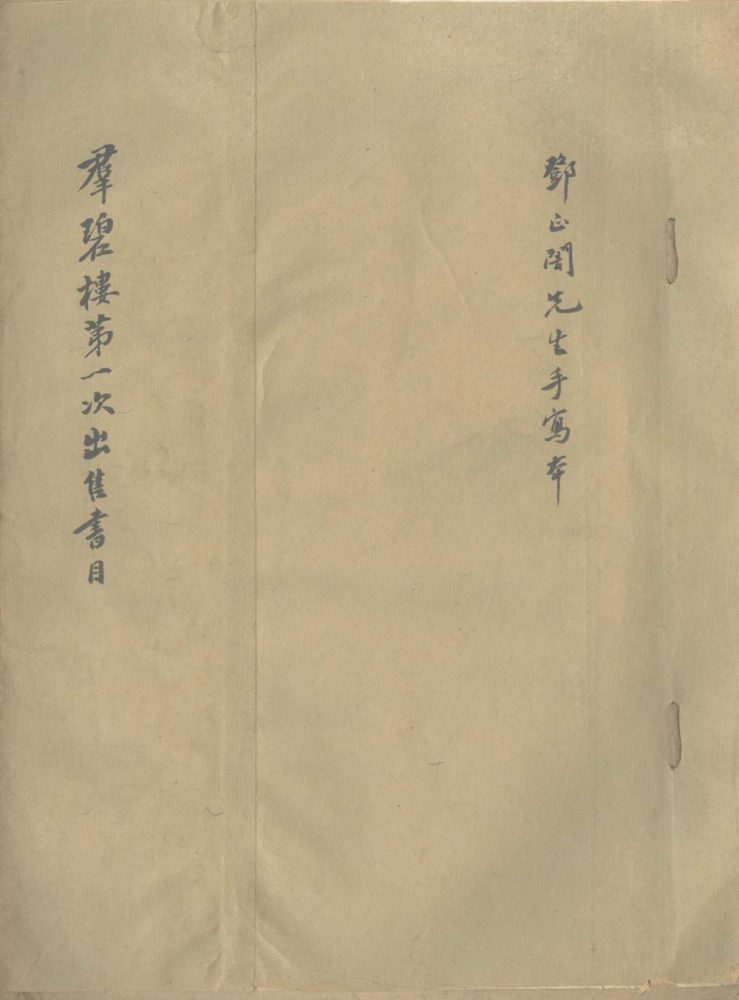 鄧正闇先生手寫本
羣碧樓第一次出售書目